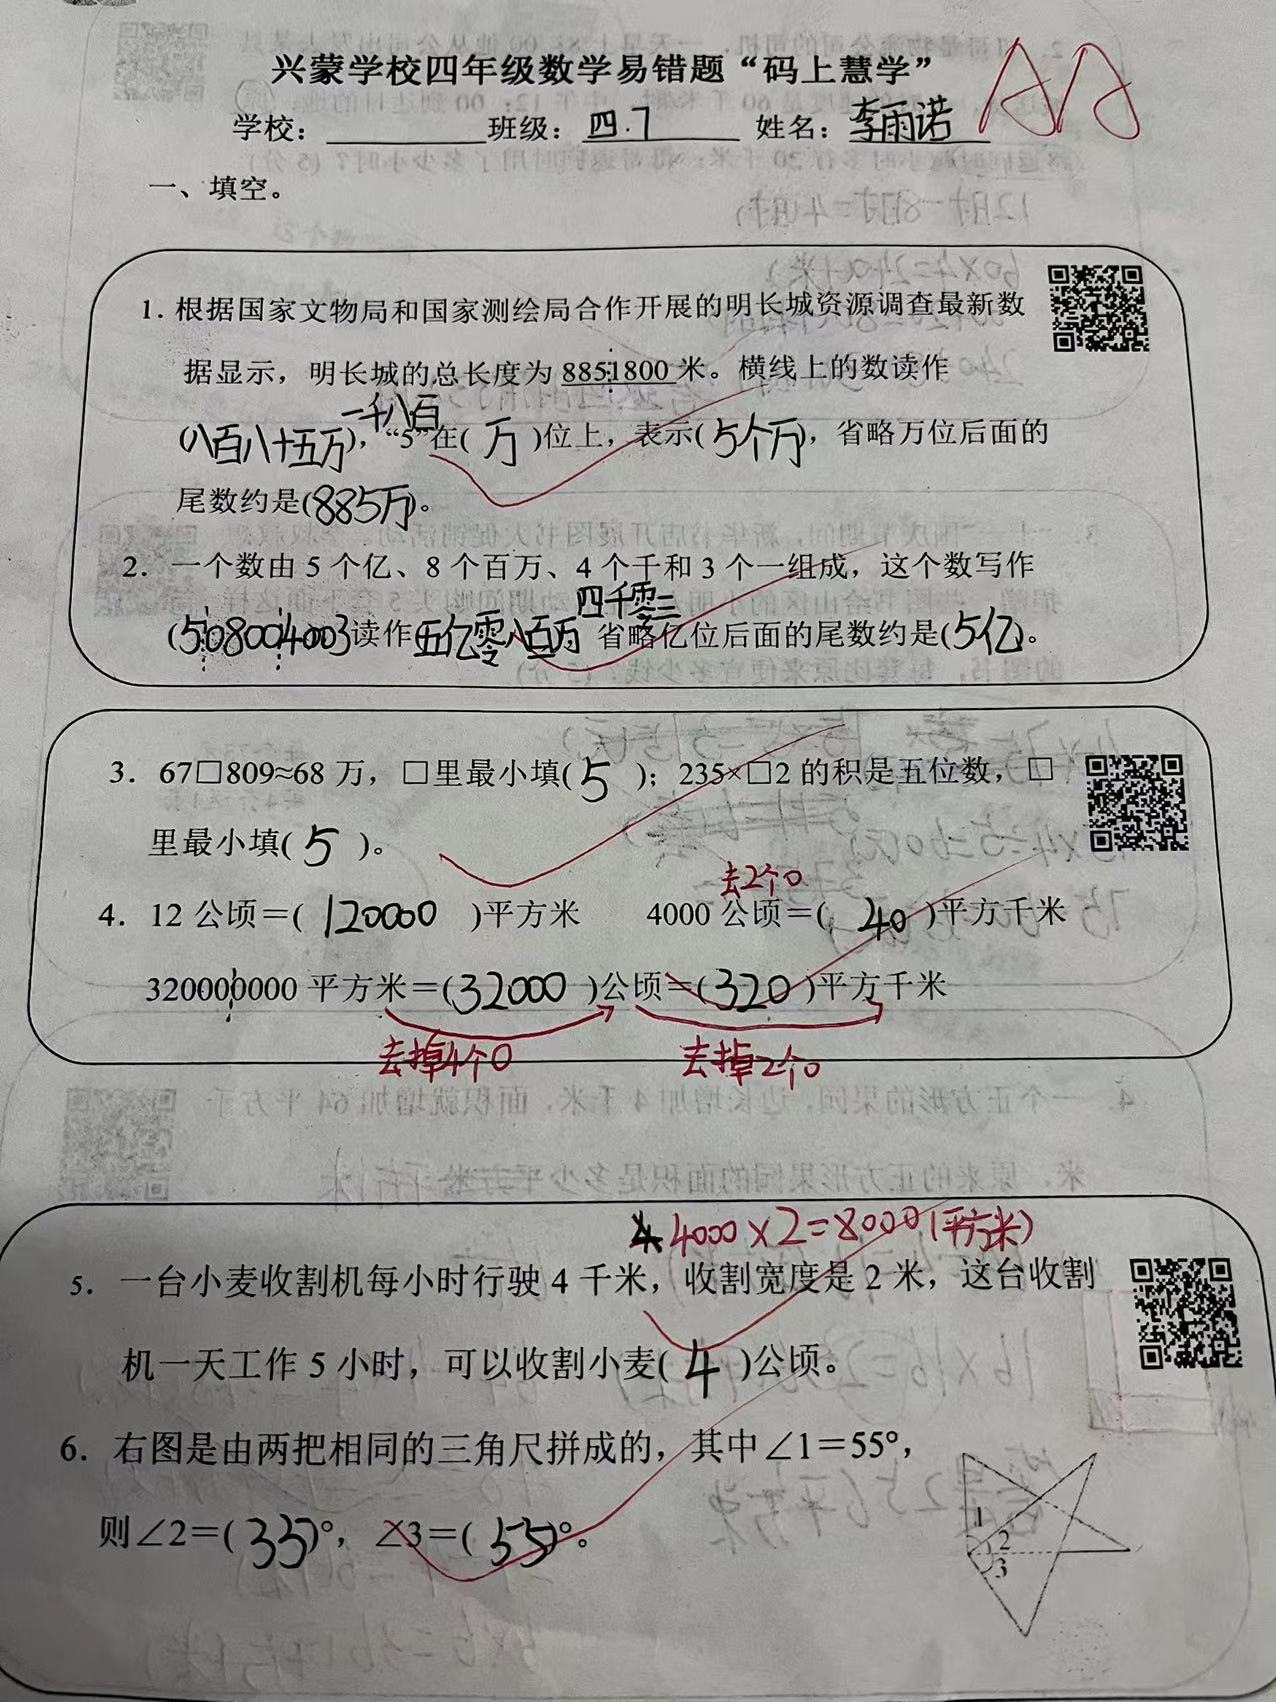 兴蒙学校四年级数学易错题“码上慧学”
AA
学校：________班级：四.7 姓名：李雨诺
一、填空。
1. 根据国家文物局和国家测绘局合作开展的明长城资源调查最新数
据显示，明长城的总长度为 8851800 米。横线上的数读作
一千八百
(八百八十五万)，“5”在( 万 )位上，表示(5个万)，省略万位后面的
尾数约是(885万)。
2. 一个数由 5 个亿、8 个百万、4 个千和 3 个一组成，这个数写作
四千零三
(508004003读作五亿零八百万 省略亿位后面的尾数约是(5亿)。
3. 67□809≈68 万，□里最小填( 5 )；235×□2 的积是五位数，□
里最小填( 5 )。
去2个0
4. 12 公顷＝( 120000 )平方米 4000 公顷＝( 40 )平方千米
320000000 平方米＝(32000 )公顷＝(320 )平方千米
去掉4个0 去掉2个0
4000×2=8000(平方米)
5. 一台小麦收割机每小时行驶 4 千米，收割宽度是 2 米，这台收割
机一天工作 5 小时，可以收割小麦( 4 )公顷。
6. 右图是由两把相同的三角尺拼成的，其中∠1＝55°，
则∠2＝( 35 )°，∠3＝( 55 )°。
1
2
3